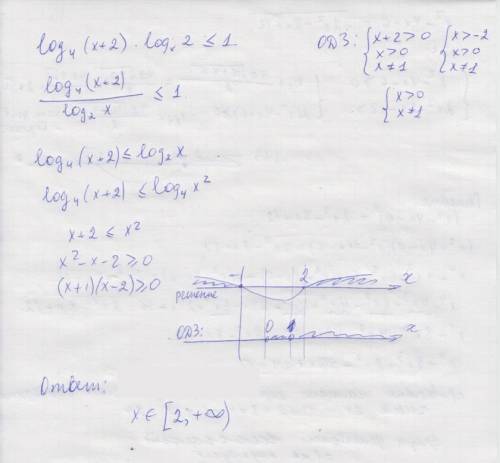 log₄(x+2) · logₓ2 ≤ 1
ОДЗ: { x+2>0 { x>-2
x>0 x>0
x≠1 x≠1
log₄(x+2) / log₂x ≤ 1
{ x>0
x≠1
log₄(x+2) ≤ log₂x
log₄(x+2) ≤ log₄x²
x+2 ≤ x²
x²-x-2 ≥ 0
(x+1)(x-2) ≥ 0
-1 2 x
решение
0 1 x
ОДЗ:
Ответ:
x ∈ [2; +∞)